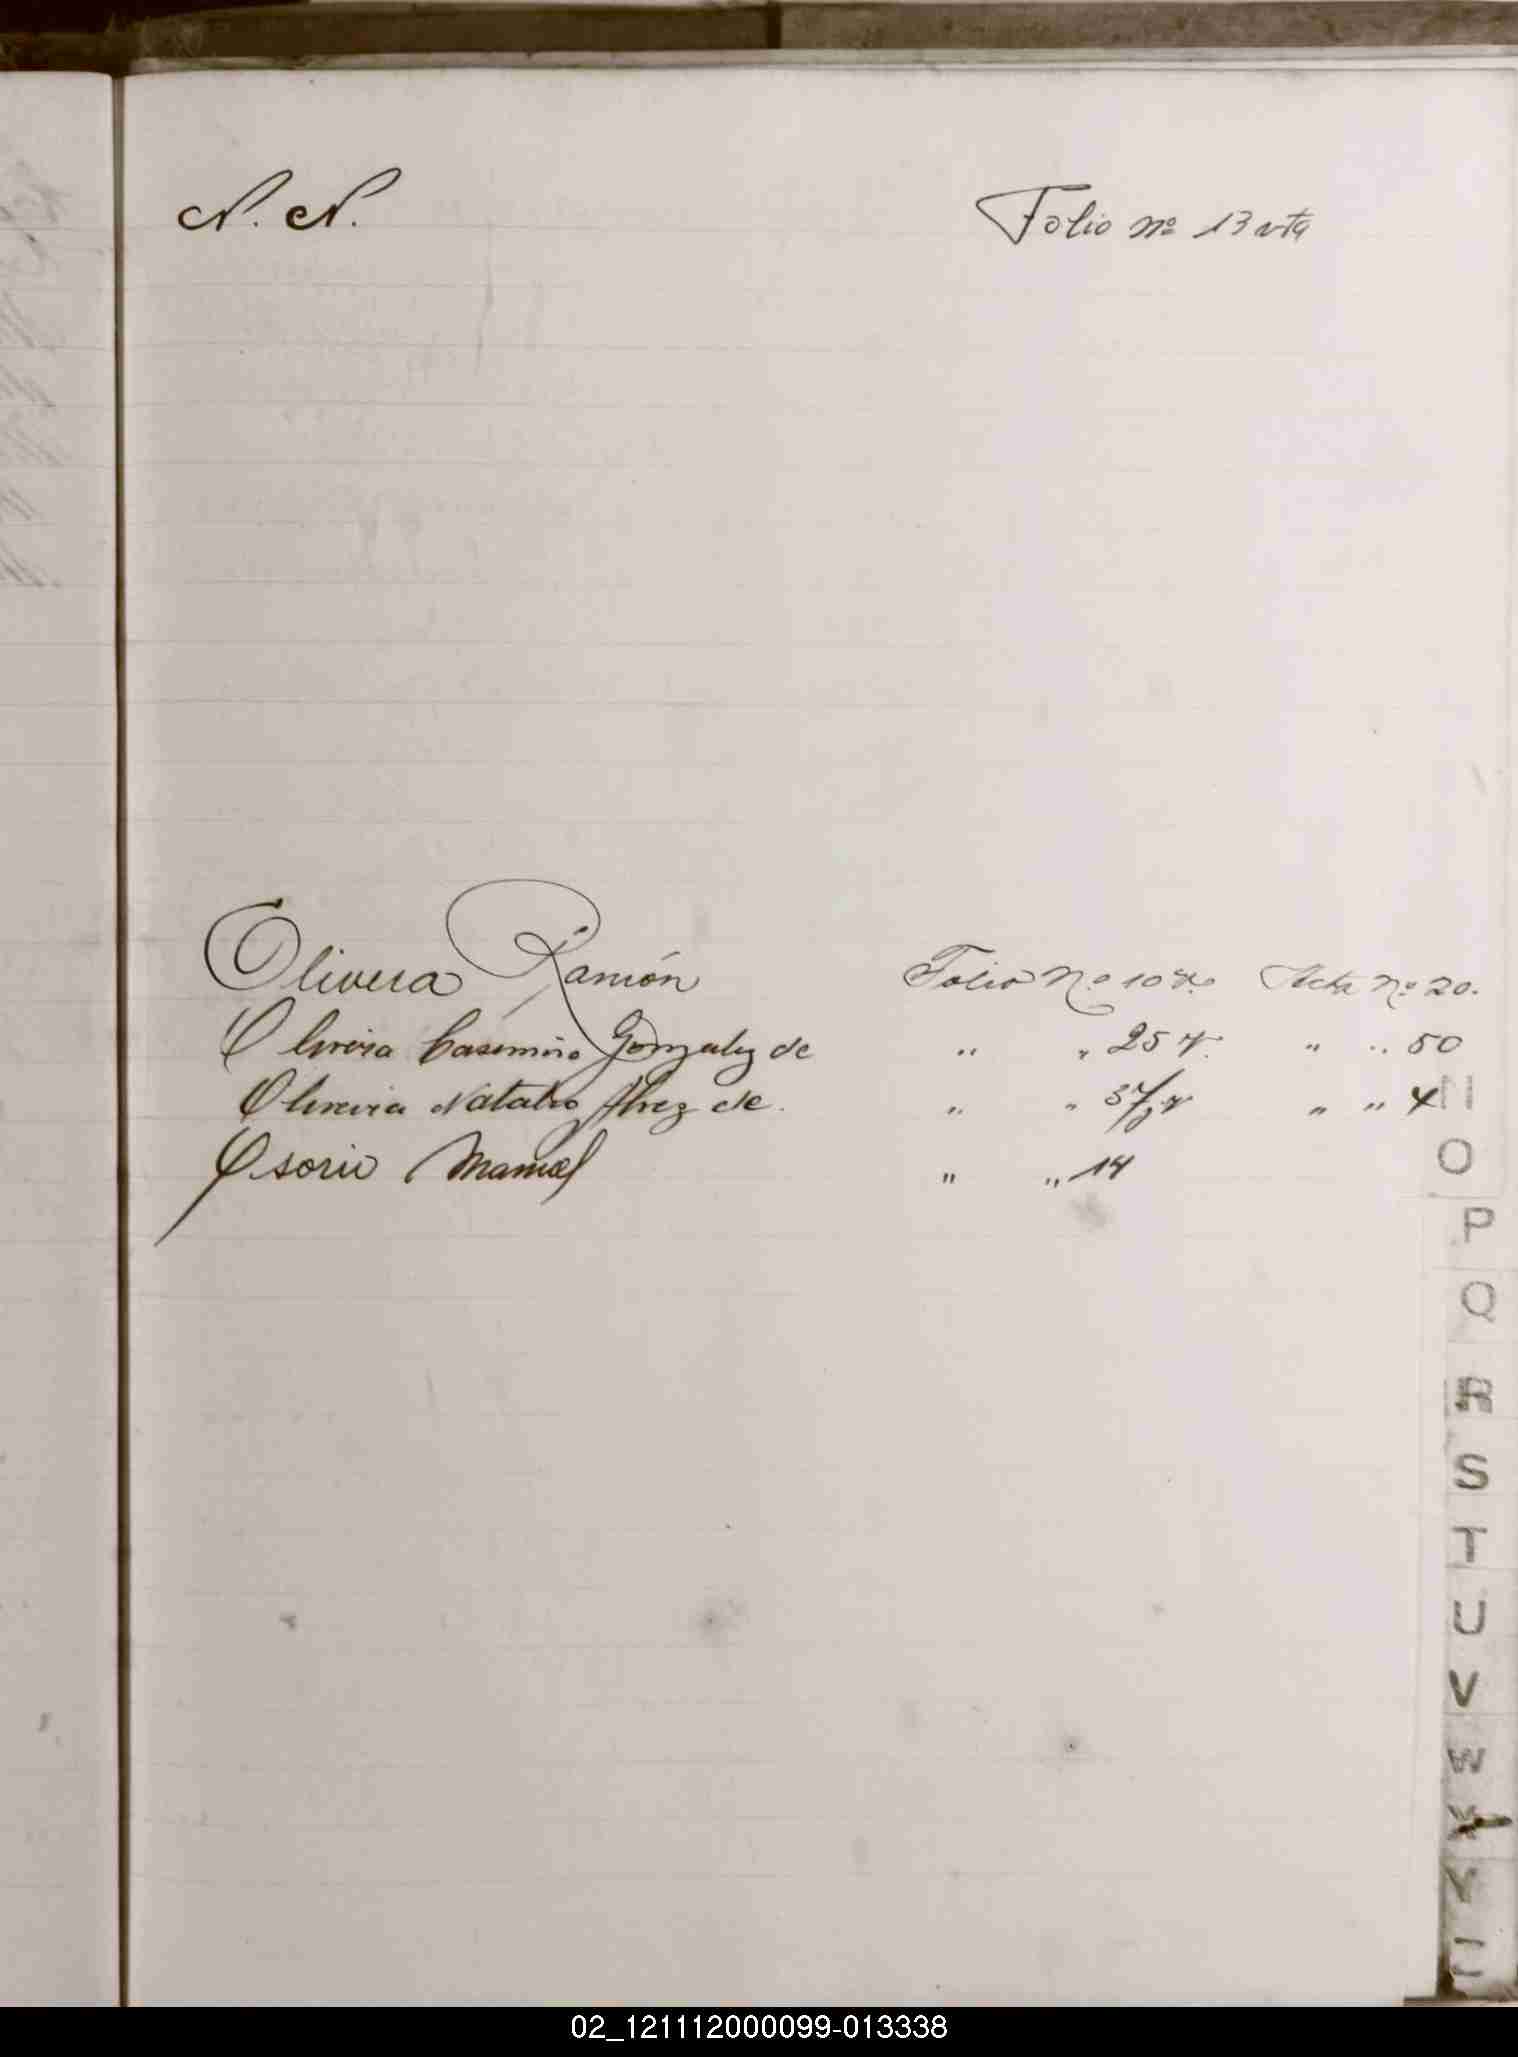 N. N. Folio nº 13 vta
Olivera Ramón Folio Nº 10 v. Acta Nº 20.
Oliveira Casimira Gonzalez de " " 25 v. " " 50
Oliveira Natalia Alvez de. " " 37 v " " 4
Osorio Manuel " " 14
N
O
P
Q
R
S
T
U
V
W
X
Y
02_121112000099-013338